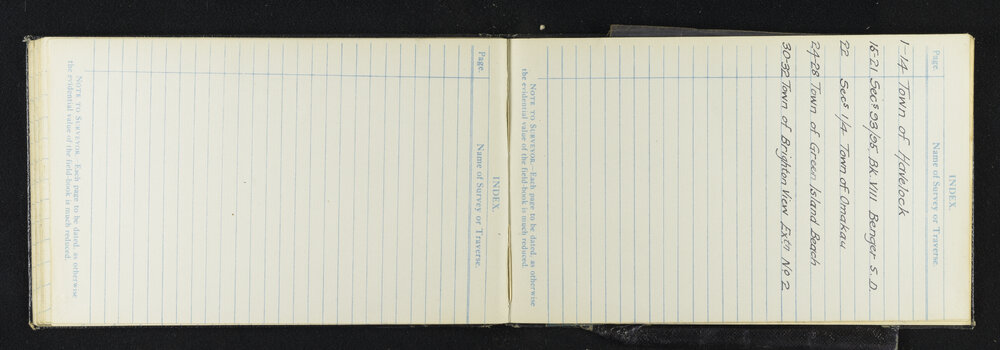 INDEX.
Page. Name of Survey or Traverse.
1-14 Town of Havelock
15-21 Secs 93/95, Bk. VIII Benger S.D.
22 Secs 1/4 Town of Omakau
24-28 Town of Green Island Beach
30-32 Town of Brighton View Extn No 2
NOTE TO SURVEYOR.—Each page to be dated, as otherwise
the evidential value of the field-book is much reduced.
INDEX.
Page. Name of Survey or Traverse.
NOTE TO SURVEYOR.—Each page to be dated, as otherwise
the evidential value of the field-book is much reduced.